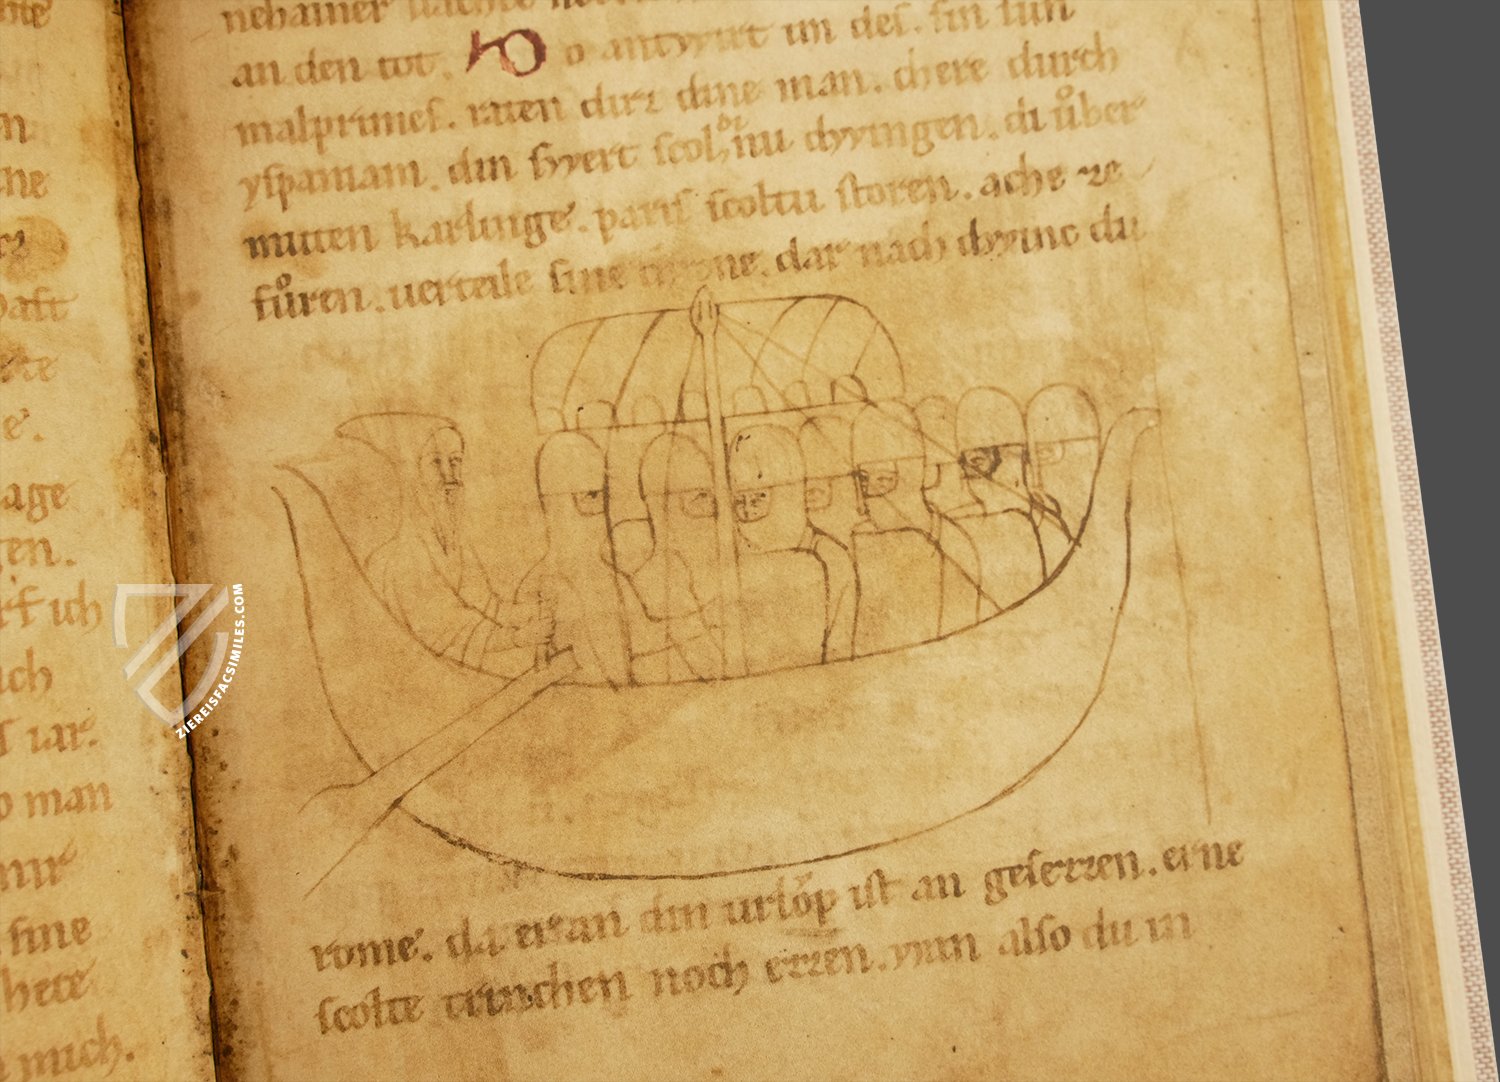 ne
ne
haft
te
e.
age
gen.
ich
ſ iar.
o man
mir
ſine
hete
mich.
nehainer
an den tot. Do antwrt im deſ. ſin ſun
malprimeſ. raten dirz dine man. chere durch
yſpaniam. din ſwert ſcoltu dwingen. di uͦber
muten karlinge. pariſ ſcoltu ſtoren. ache ze
fuͦren. uerteile ſine chrone. dar nach dwinc du
rome. da er an din urloͮp iſt an geſezzen. erne
ſcolte trinchen noch ezzen. wan alſo du in
ZIEREISFACSIMILES.COM